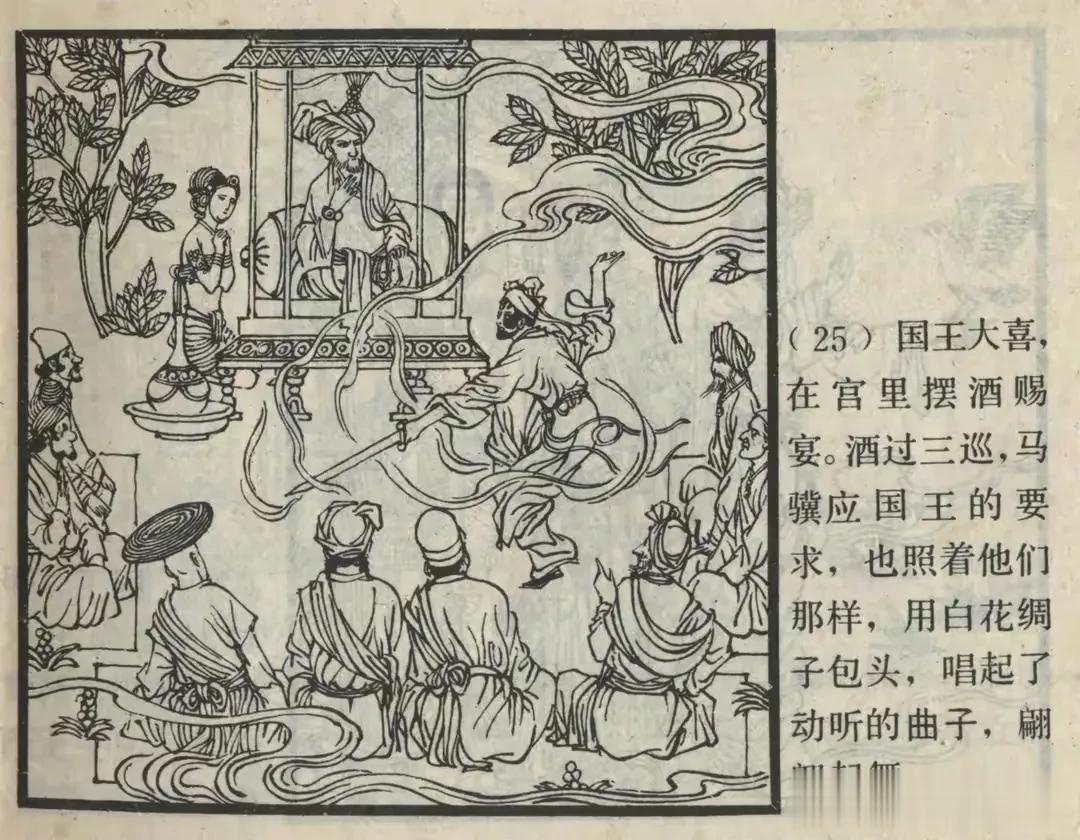 （25）国王大喜，
在宫里摆酒赐
宴。酒过三巡，马
骥应国王的要
求，也照着他们
那样，用白花绸
子包头，唱起了
动听的曲子，翩